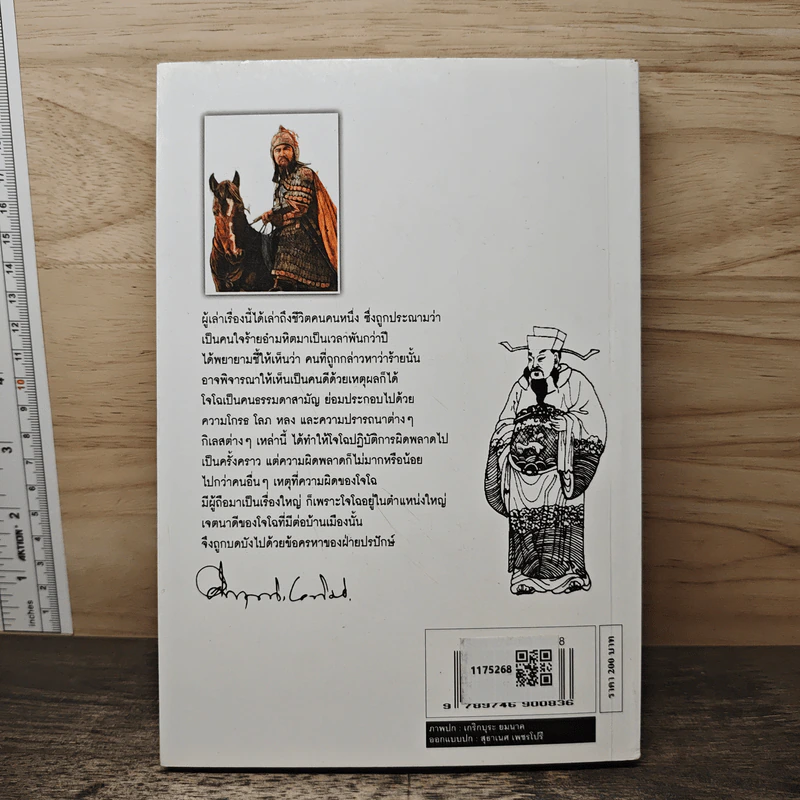 ผู้เล่าเรื่องนี้ได้เล่าถึงชีวิตคนคนหนึ่ง ซึ่งถูกประณามว่า
เป็นคนใจร้ายอำมหิตมาเป็นเวลาพันกว่าปี
ได้พยายามชี้ให้เห็นว่า คนที่ถูกกล่าวหาว่าร้ายนั้น
อาจพิจารณาให้เห็นเป็นคนดีด้วยเหตุผลก็ได้
โจโฉเป็นคนธรรมดาสามัญ ย่อมประกอบไปด้วย
ความโกรธ โลภ หลง และความปรารถนาต่างๆ
กิเลสต่างๆ เหล่านี้ ได้ทำให้โจโฉปฏิบัติการผิดพลาดไป
เป็นครั้งคราว แต่ความผิดพลาดก็ไม่มากหรือน้อย
ไปกว่าคนอื่นๆ เหตุที่ความผิดของโจโฉ
มีผู้ถือมาเป็นเรื่องใหญ่ ก็เพราะโจโฉอยู่ในตำแหน่งใหญ่
เจตนาดีของโจโฉที่มีต่อบ้านเมืองนั้น
จึงถูกบดบังไปด้วยข้อครหาของฝ่ายปรปักษ์
8
1175268
9 789746 900836
ราคา 200 บาท
ภาพปก : เกริกบุระ ยมนาค
ออกแบบปก : สุธาเนศ เพชรโปรี
inches
1
2
3
4
10
11
12
13
14
15
16